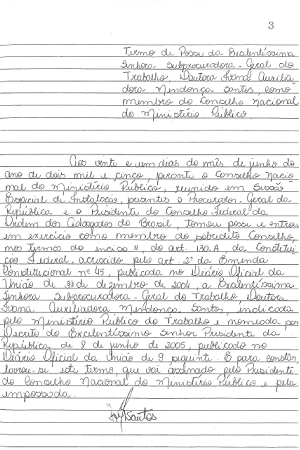 3
Termo de Posse da Excelentíssima
Senhora Subprocuradora-Geral do
Trabalho, Doutora Ivana Auxilia-
dora Mendonça Santos, como
membro do Conselho Nacional
do Ministério Público
Aos vinte e um dias do mês de junho do
ano de dois mil e cinco, perante o Conselho Nacio-
nal do Ministério Público, reunido em Sessão
Especial de Instalação, presentes o Procurador-Geral da
República e o Presidente do Conselho Federal da
Ordem dos Advogados do Brasil, tomou posse e entrou
em exercício como membro do sobredito Conselho,
nos termos do inciso II do art. 130.A, da Constitui-
ção Federal, acrescido pelo art. 5º da Emenda
Constitucional nº 45, publicada no Diário Oficial da
União de 31 de dezembro de 2004, a Excelentíssima
Senhora Subprocuradora-Geral do Trabalho, Doutora
Ivana Auxiliadora Mendonça Santos, indicada
pelo Ministério Público do Trabalho e nomeada por
Decreto do Excelentíssimo Senhor Presidente da
República, de 8 de junho de 2005, publicado no
Diário Oficial da União de 9 seguinte. E para constar,
lavrou-se este termo, que vai assinado pelo Presidente
do Conselho Nacional do Ministério Público e pela
empossada.
Santos